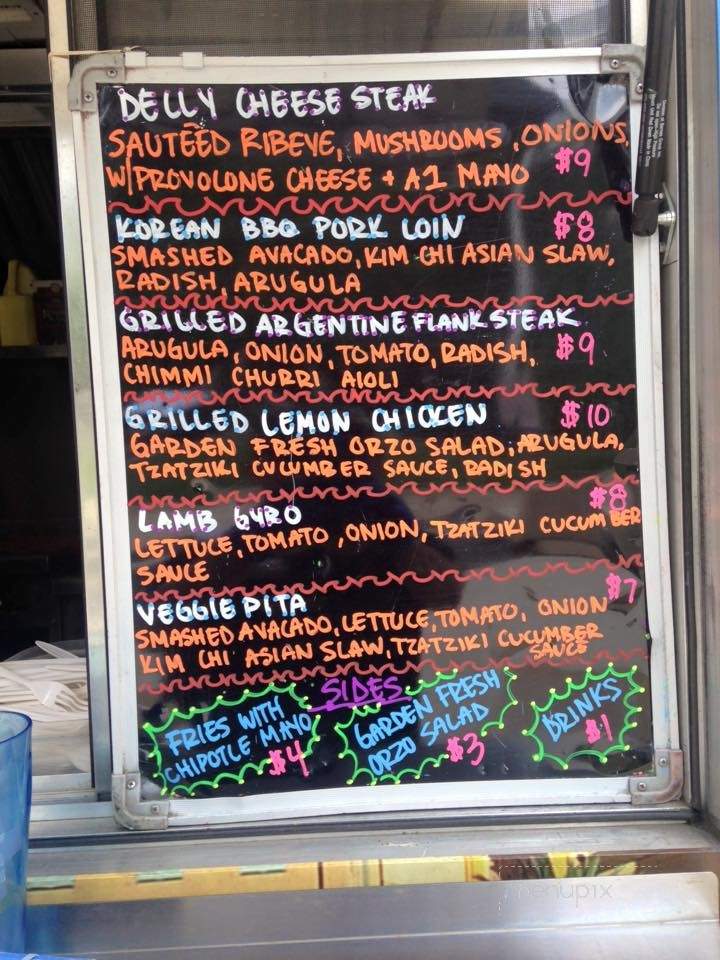 DELLY CHEESE STEAK
SAUTEED RIBEYE, MUSHROOMS, ONIONS,
W/PROVOLONE CHEESE + A1 MAYO $9
KOREAN BBQ PORK LOIN $8
SMASHED AVACADO, KIM CHI ASIAN SLAW,
RADISH, ARUGULA
GRILLED ARGENTINE FLANK STEAK
ARUGULA, ONION, TOMATO, RADISH, $9
CHIMMI CHURRI AIOLI
GRILLED LEMON CHICKEN $10
GARDEN FRESH ORZO SALAD, ARUGULA,
TZATZIKI CUCUMBER SAUCE, RADISH
LAMB GYRO $8
LETTUCE, TOMATO, ONION, TZATZIKI CUCUMBER
SAUCE
VEGGIE PITA $7
SMASHED AVACADO, LETTUCE, TOMATO, ONION
KIM CHI ASIAN SLAW, TZATZIKI CUCUMBER
SAUCE
SIDES
FRIES WITH
CHIPOTLE MAYO
$4
GARDEN FRESH
ORZO SALAD
$3
DRINKS
$1
menupix